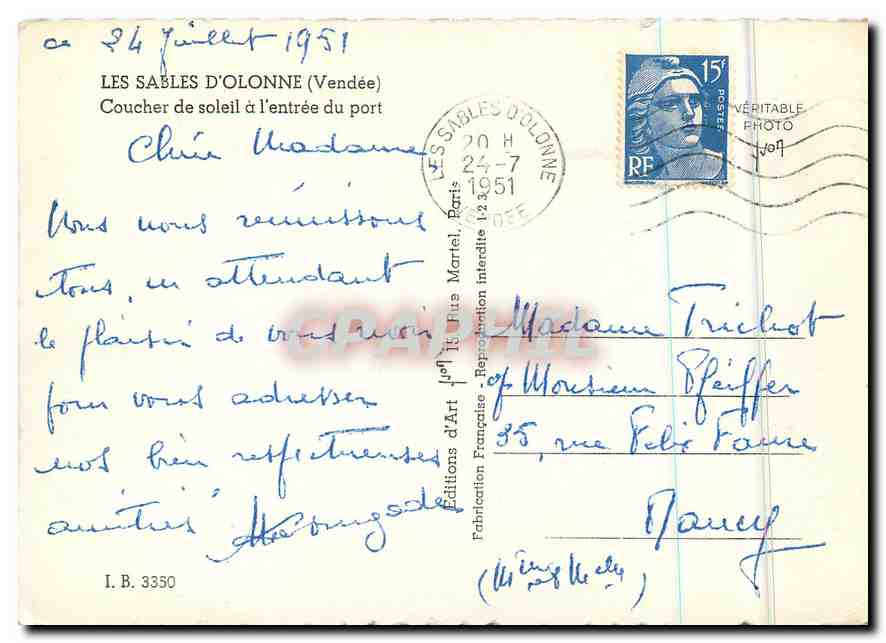 ce 24 Juillet 1951
LES SABLES D'OLONNE (Vendée)
Coucher de soleil à l'entrée du port
Chère Madame
Nous nous réunissons
tous, en attendant
le plaisir de vous voir
pour vous adresser
nos bien respectueuses
amitiés
I. B. 3350
LES SABLES D'OLONNE
20 H
24-7
1951
VENDEE
15F
POSTES
RF
VÉRITABLE
PHOTO
yvon
Editions d'Art yvon 15, Rue Martel, Paris
Fabrication Française Reproduction interdite 1-2-3
CPAPHIL
Madame Trichot
c/ Monsieur Pfeiffer
35, rue Félix Faure
Nancy
(Mthe et Melle)